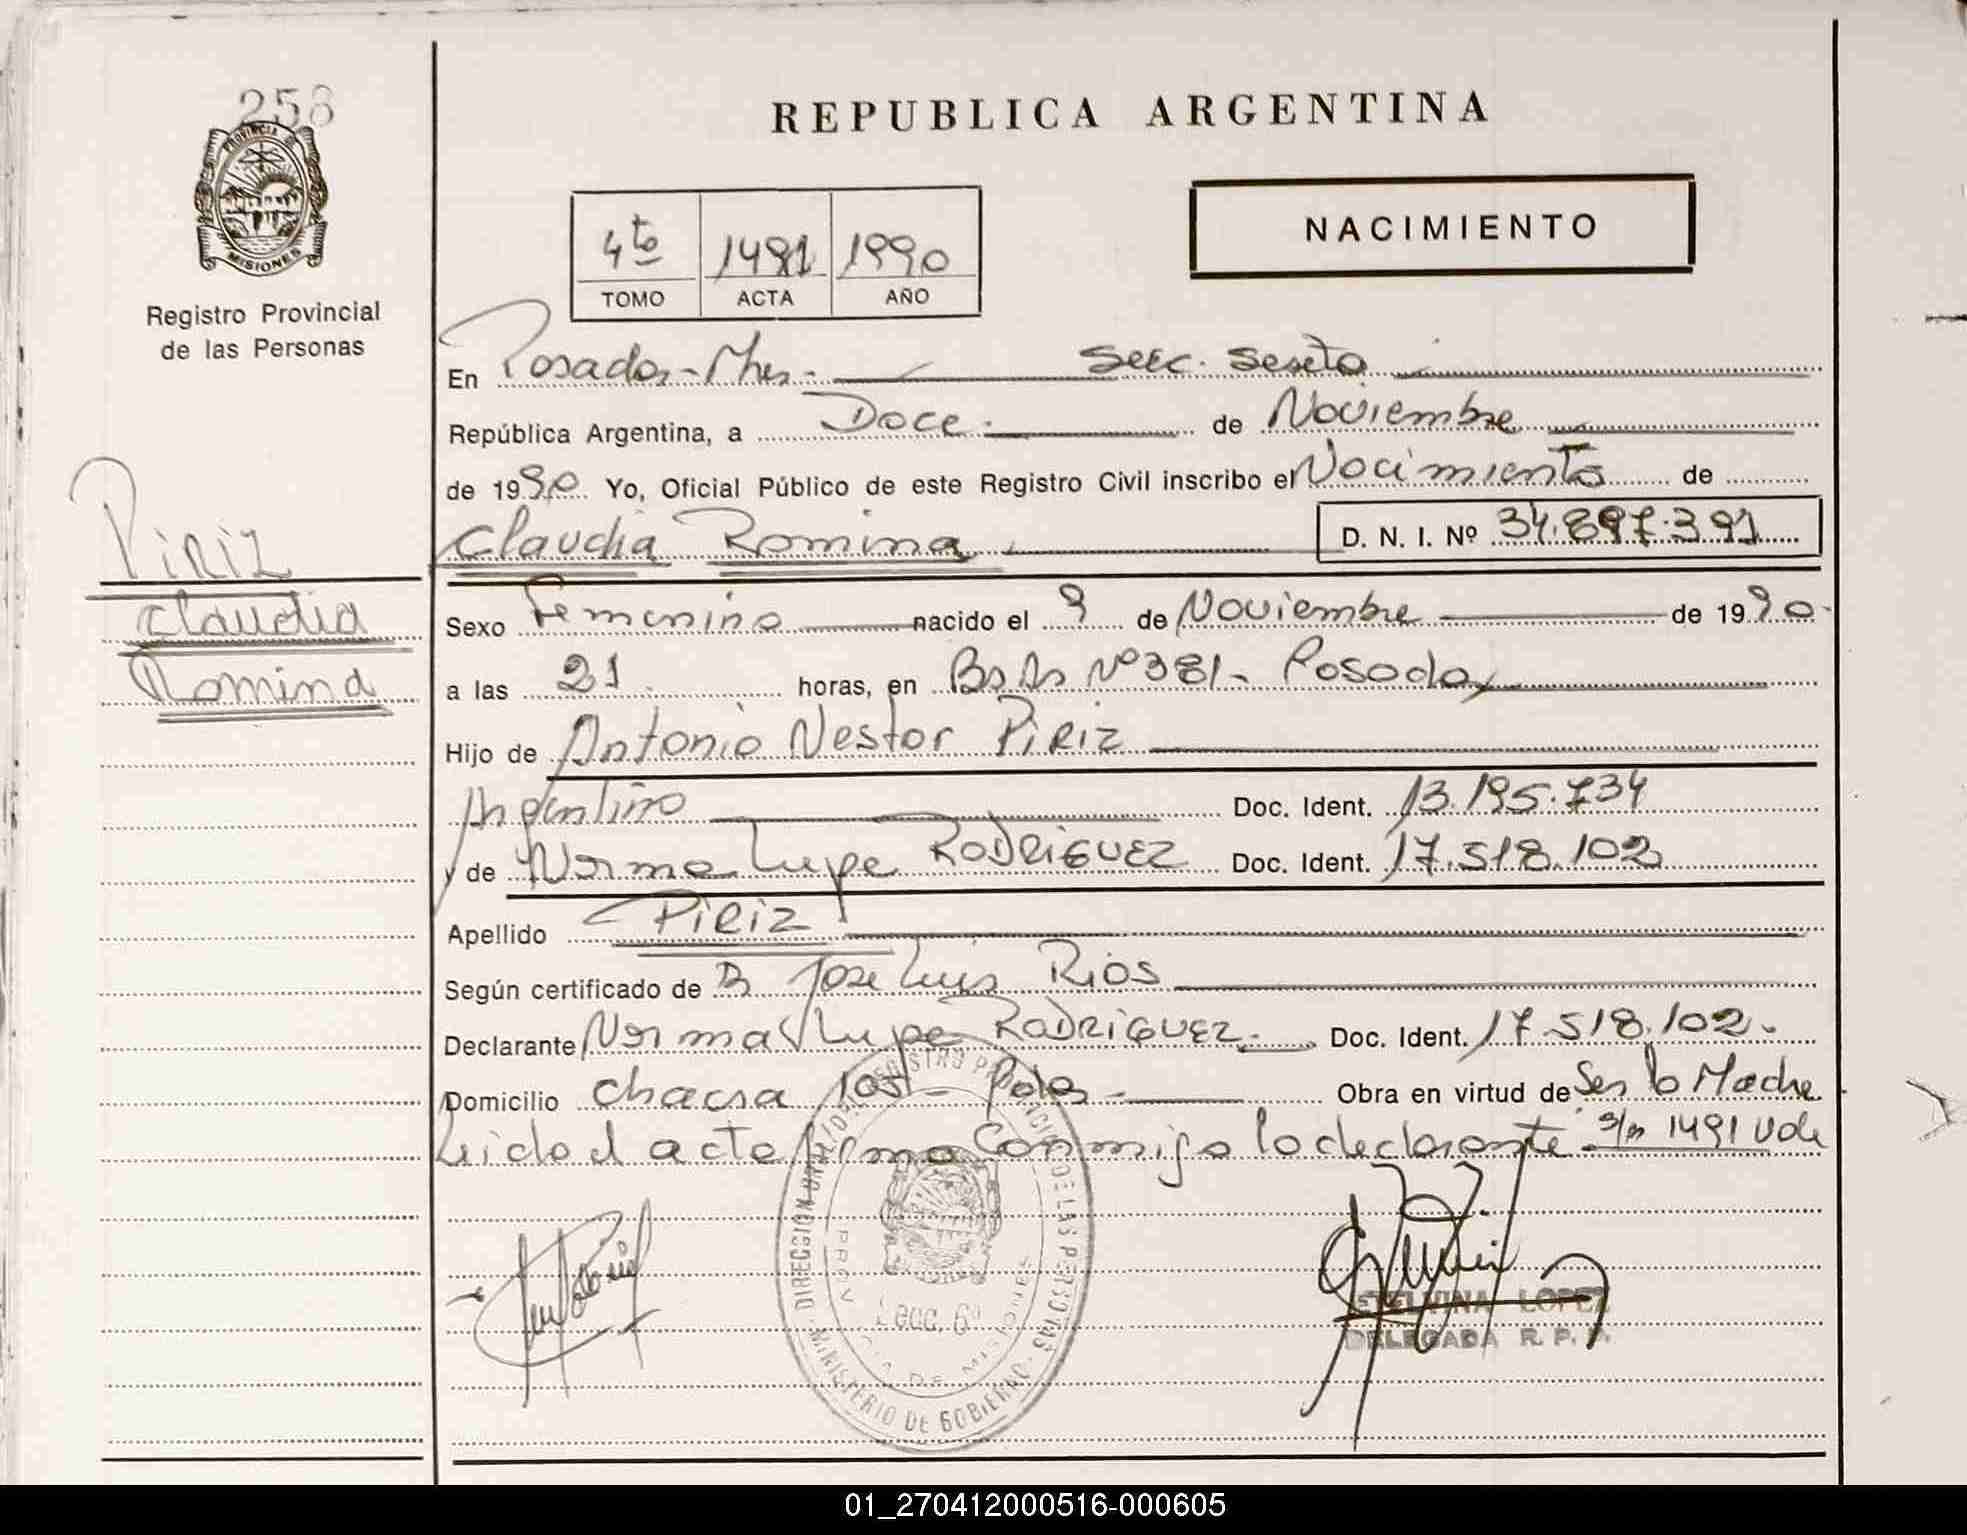 258
REPUBLICA ARGENTINA
PROVINCIA
MISIONES
NACIMIENTO
4to 1491 1990
TOMO ACTA AÑO
Registro Provincial
de las Personas
En Posadas - Mnes - Secc. Sexta
República Argentina, a Doce de Noviembre
de 1990 Yo, Oficial Público de este Registro Civil inscribo el Nacimiento de
Claudia Romina D. N. I. Nº 34.897.391
PIRIZ
Claudia
Romina
Sexo Femenino nacido el 9 de Noviembre de 1990
a las 21 horas, en Bs As Nº 381 - Posadas
Hijo de Antonio Nestor PIRIZ
Argentino Doc. Ident. 13.195.734
y de Norma Lupe RODRIGUEZ Doc. Ident. 17.518.102
Apellido PIRIZ
Según certificado de Jose Luis Rios
Declarante Norma Lupe RODRIGUEZ Doc. Ident. 17.518.102
Domicilio Chacra Pdas Obra en virtud de Ser la Madre
Leida el acta firma Conmigo la declarante 1491 Vale
DIRECCION GRAL. DEL REGISTRO PROVINCIAL DE LAS PERSONAS
MINISTERIO DE GOBIERNO
PROVINCIA DE MISIONES
Secc. 6ª
ETELVINA LOPEZ
DELEGADA R. P. P.
01_270412000516-000605